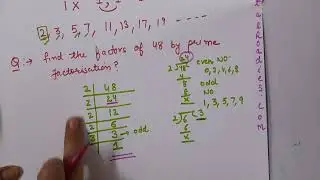 1 x
2, 3, 5, 7, 11, 13, 17, 19 ----
Q:→ find the factors of 48 by prime
factorisation?
2 | 48
2 | 24
2 | 12
2 | 6
3 | 3 → odd
1
24
2)48
4
8
8
x
even NO.
0, 2, 4, 6, 8
odd
NO
1, 3, 5, 7, 9
2)6(3
6
x